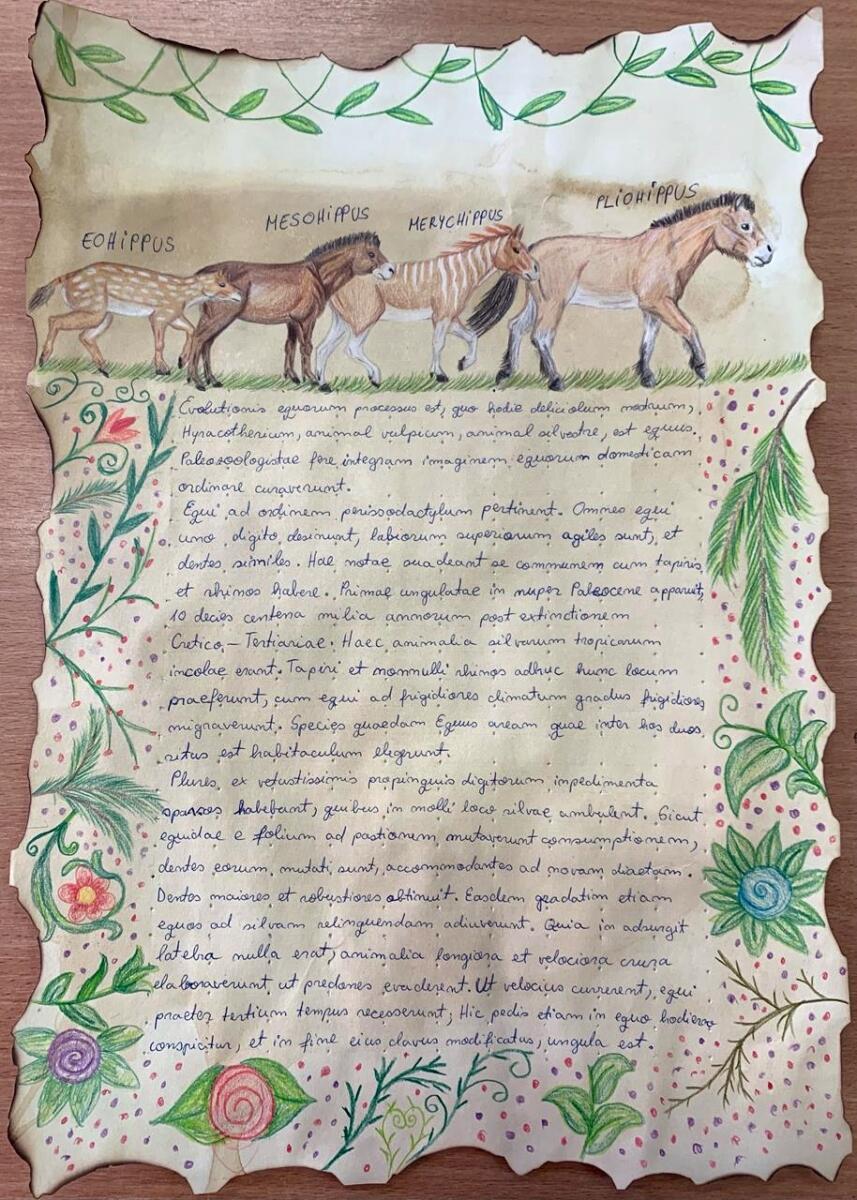 EOHIPPUS
MESOHIPPUS
MERYCHIPPUS
PLIOHIPPUS
Evolutionis equorum processus est, quo hodie deliciolum nostrum,
Hyracotherium, animal vulpicum, animal silvestre, est equus.
Paleozoologistae fere integram imaginem equorum domesticam
ordinare curaverunt.
Equi ad ordinem perissodactylum pertinent. Omnes equi
uno digito desinunt, labiorum superiorum agiles sunt, et
dentes similes. Hae notae suadeant se communem cum tapiris
et rhinos habere. Primae ungulatae in nuper Paleocene apparuit,
10 decies centena milia annorum post extinctionem
Cretico-Tertiariae. Haec animalia silvarum tropicarum
incolae erant. Tapiri et nonnulli rhinos adhuc hunc locum
praeferunt, cum equi ad frigidiores climatum gradus frigidiores
migraverunt. Species quaedam Equus aream quae inter hos duos
situs est habitaculum elegerunt.
Plures, ex vetustissimis propinquis digitorum impedimenta
sparsos habebant, quibus in molli loco silvae ambulent. Sicut
equidae e folium ad pastionem mutaverunt consumptionem,
dentes eorum, mutati, sunt, accommodantes ad novam diaetam.
Dentes maiores et robustiores obtinuit. Easdem gradatim etiam
equos ad silvam relinquendam adiuverunt. Quia in adsurgit
latebra nulla erat, animalia longiora et velociora crura
elaboraverunt ut predones evaderent. Ut velocius currerent, equi
praeter tertium tempus recesserunt; Hic pedis etiam in equo hodierno
conspicitur, et in fine eius clavus modificatus, ungula est.